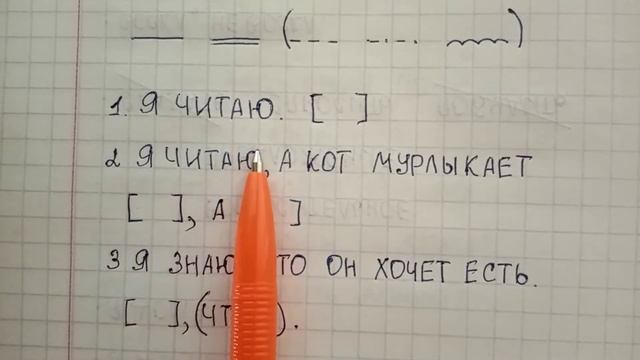 1. Я ЧИТАЮ. [ ]
2 Я ЧИТАЮ, А КОТ МУРЛЫКАЕТ
[ ], А ]
3 Я ОН ХОЧЕТ ЕСТЬ.
[ ], ( ).